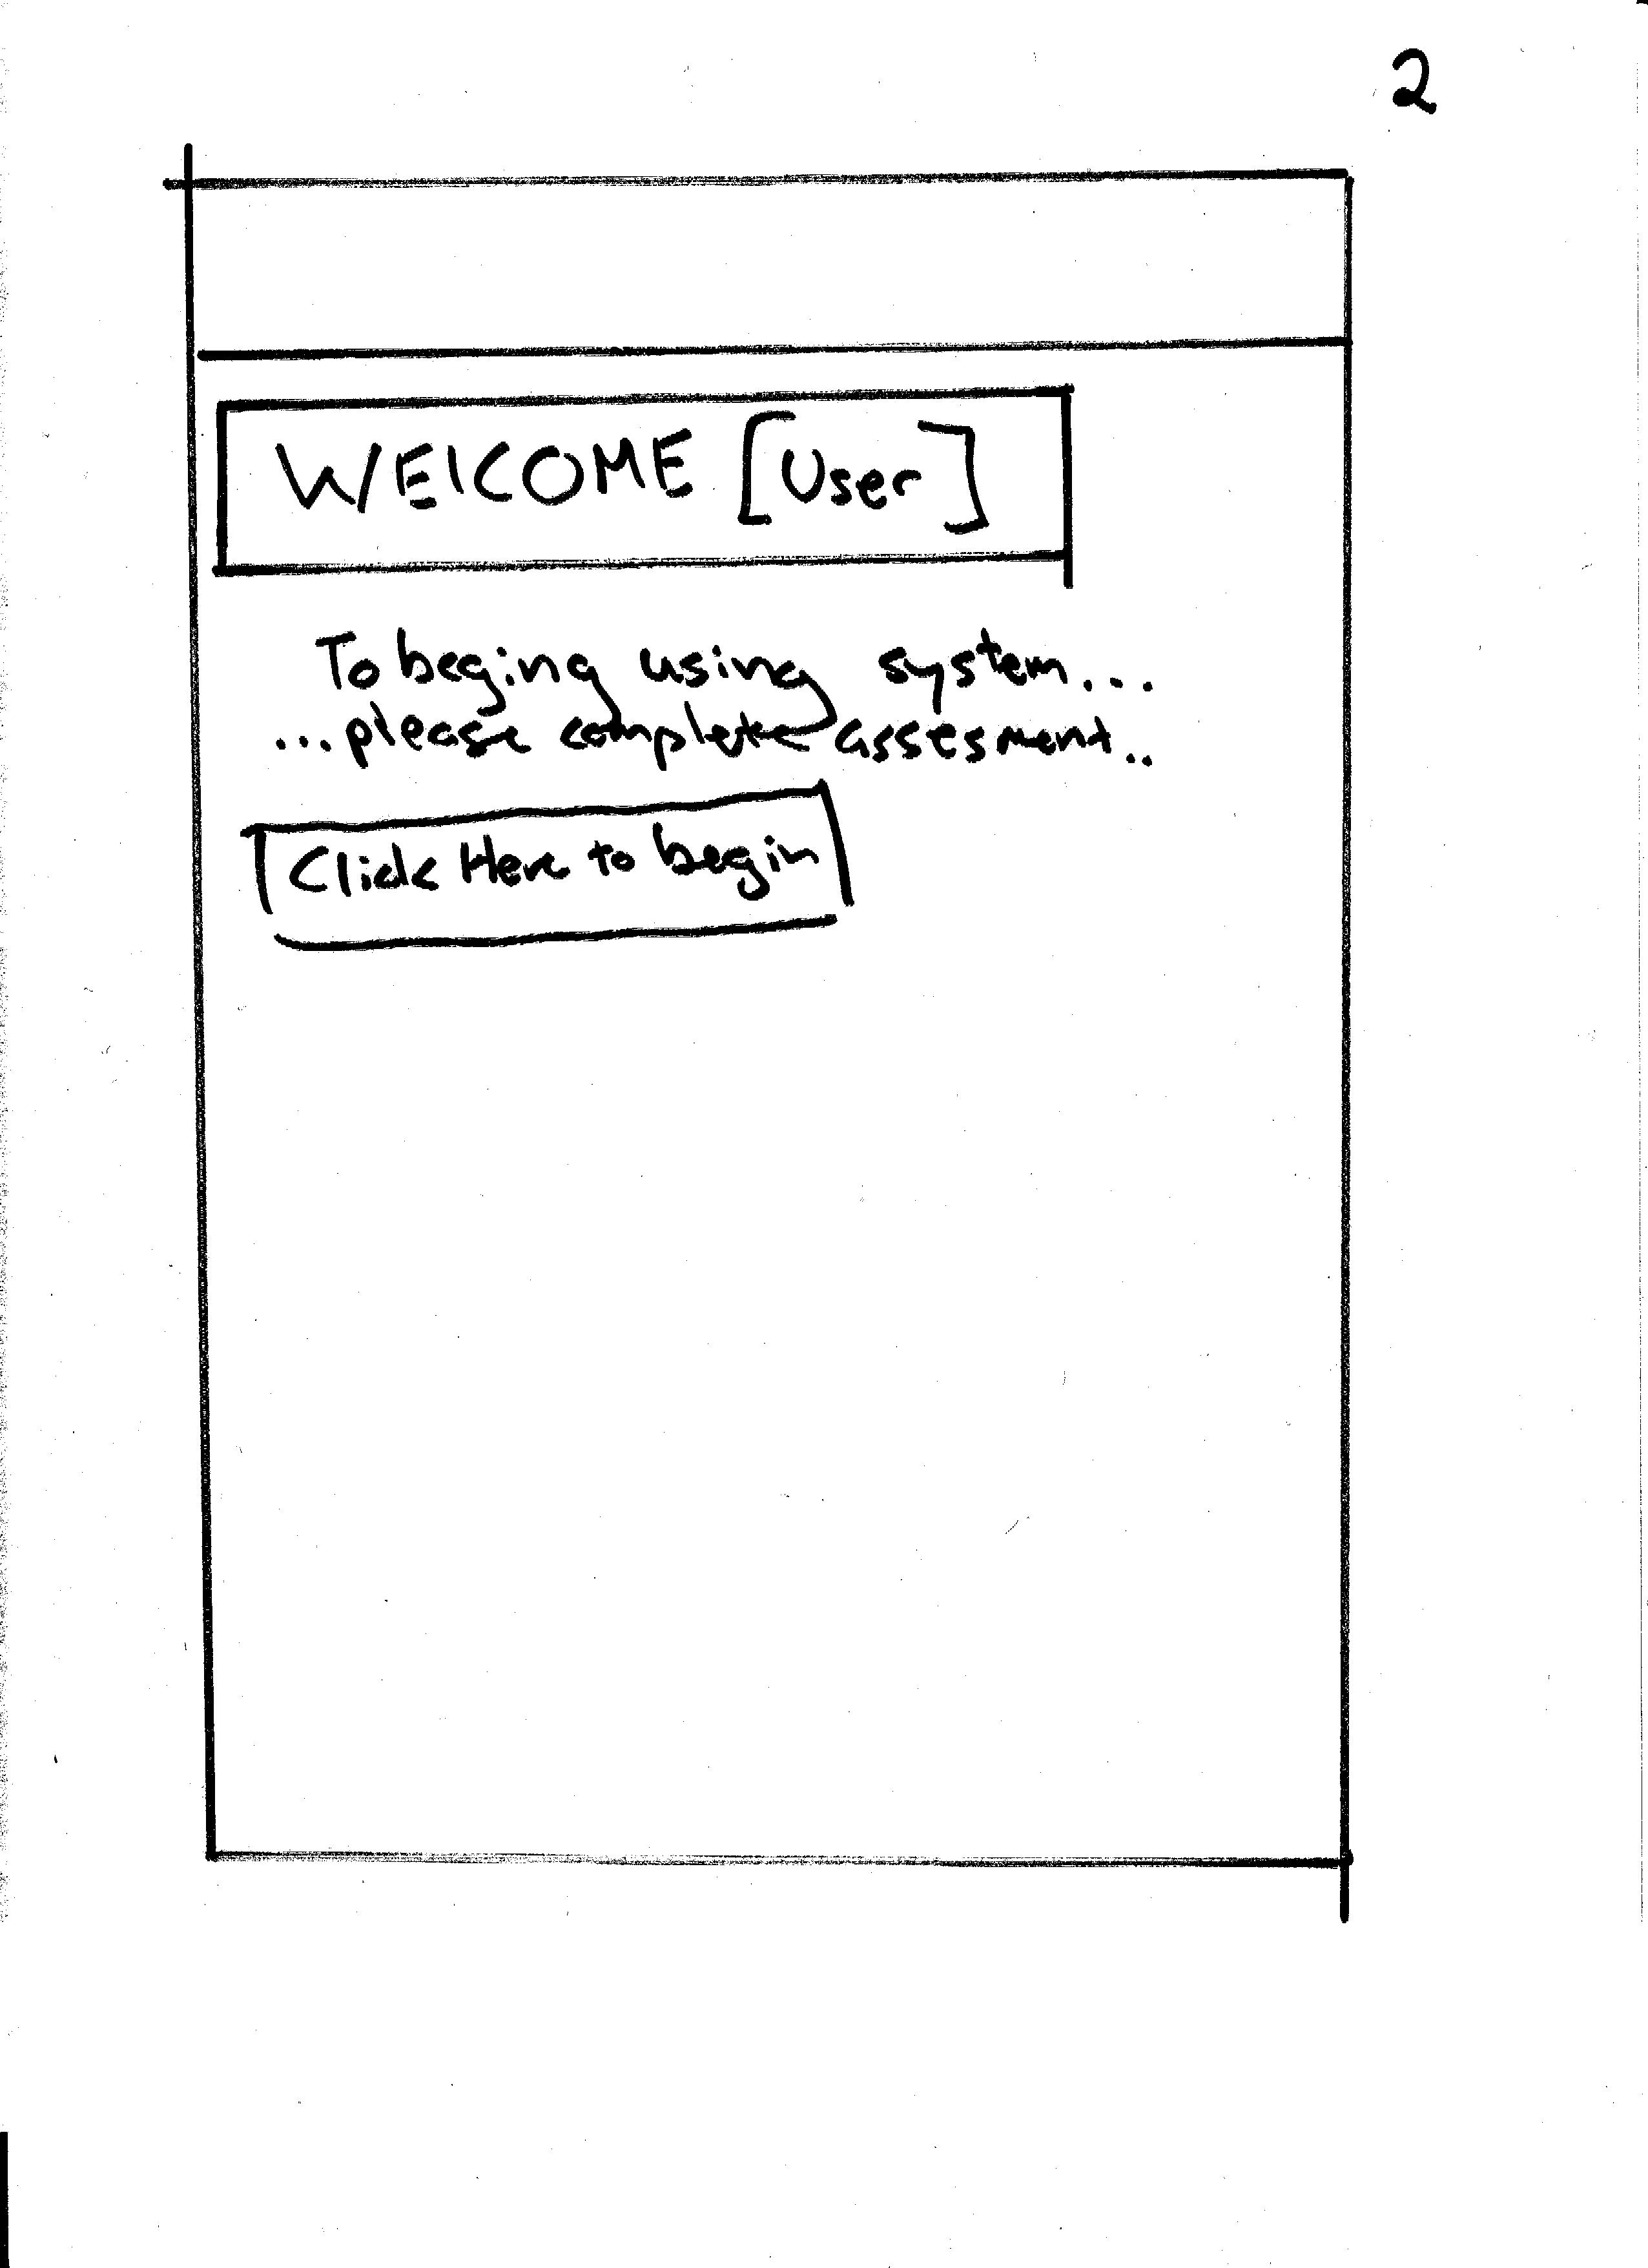 2
WELCOME [User]
To beging using system...
...please complete assesment..
Click Here to begin